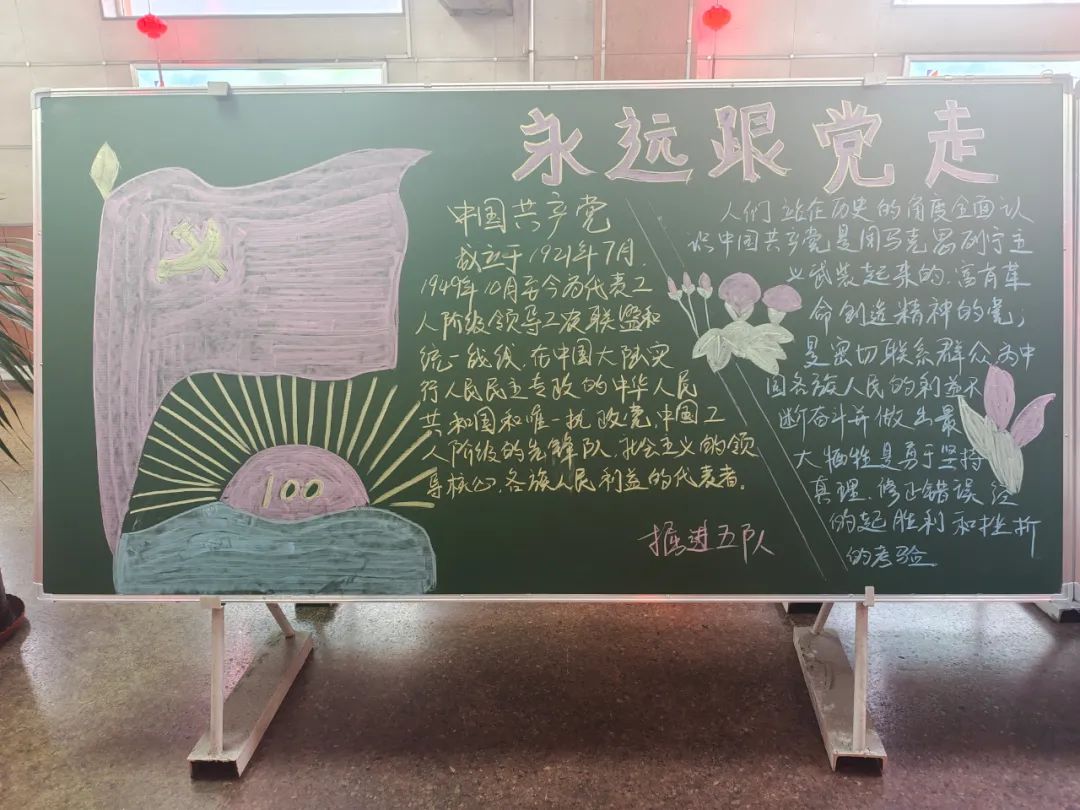 永远跟党走
中国共产党
成立于1921年7月.
1949年10月至今为代表工
人阶级领导工农联盟和
统一战线.在中国大陆实
行人民民主专政的中华人民
共和国和唯一执政党.中国工
人阶级的先锋队.社会主义的领
导核心.各族人民利益的代表者.
掘进五队
人们站在历史的角度全面认
识中国共产党是用马克思列宁主
义武装起来的.富有革
命创造精神的党;
是密切联系群众为中
国各族人民的利益不
断奋斗并做出最
大牺牲是勇于坚持
真理.修正错误经
的起胜利和挫折
的考验
100